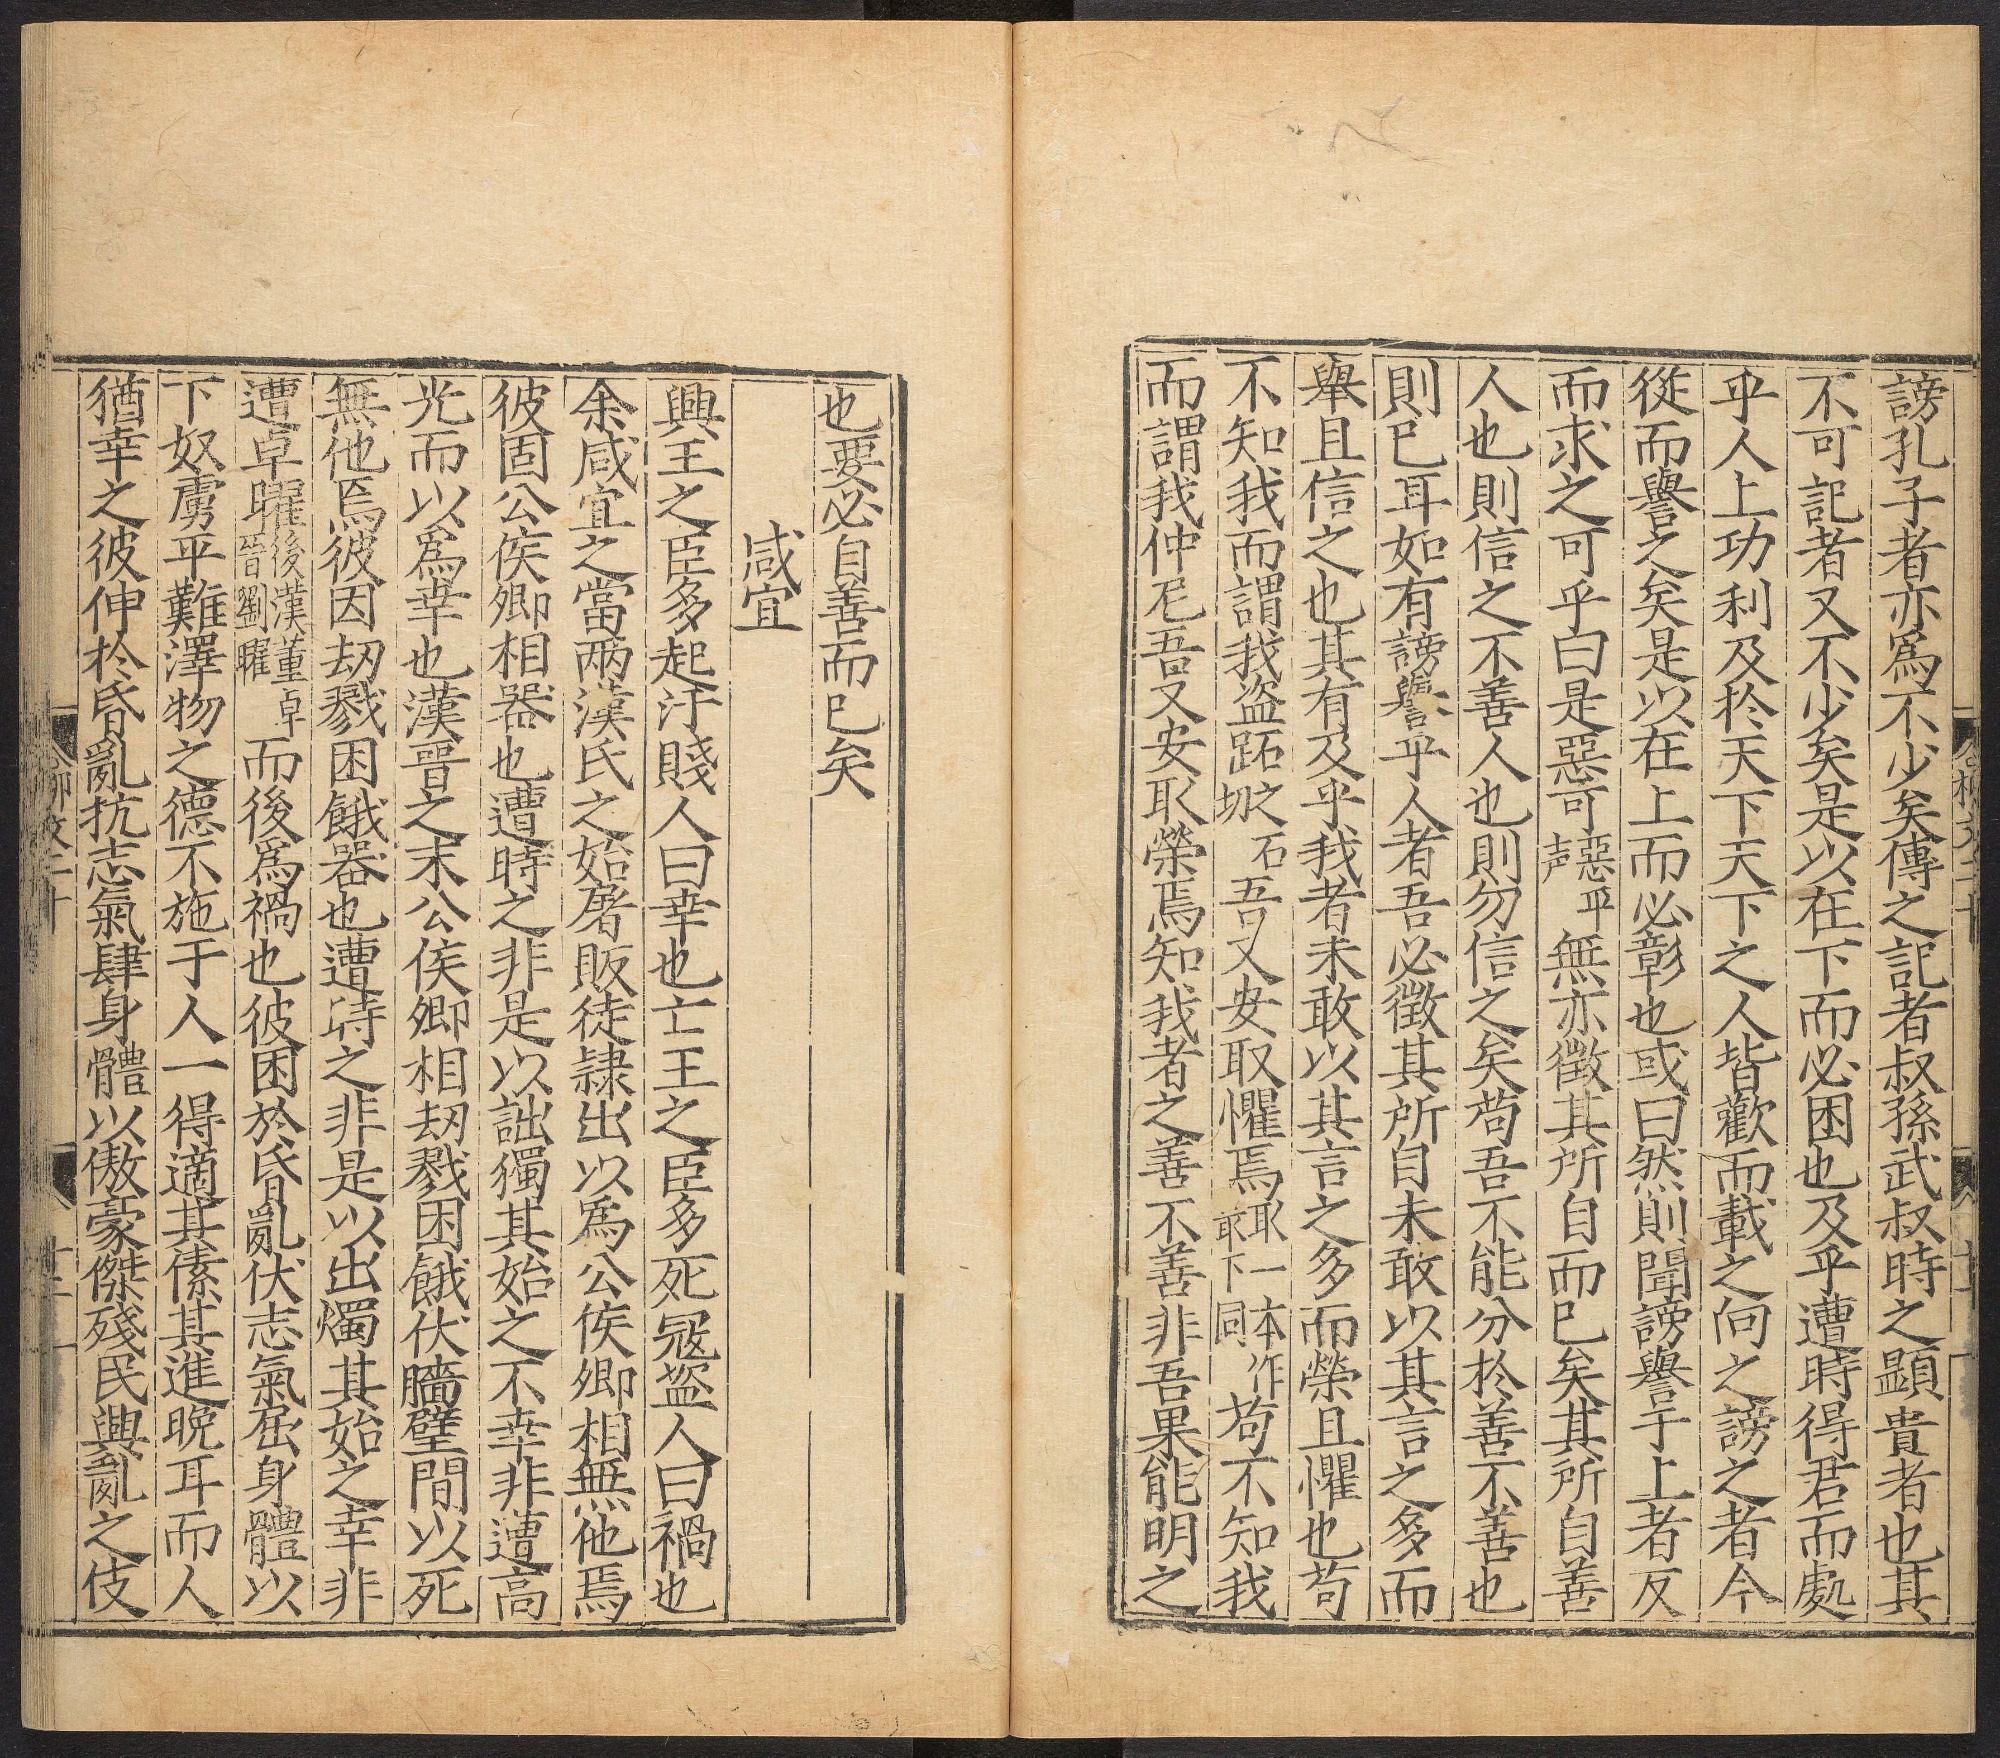 謗孔子者亦爲不少矣傳之記者叔孫武叔時之顯貴者也其
不可記者又不少矣是以在下而必困也及乎遭時得君而處
乎人上功利及於天下天下之人皆歡而載之向之謗之者今
從而譽之矣是以在上而必彰也或曰然則聞謗譽于上者反
而求之可乎曰是惡可惡平声無亦徵其所自而已矣其所自善
人也則信之不善人也則勿信之矣苟吾不能分於善不善也
則已耳如有謗譽乎人者吾必徵其所自未敢以其言之多而
舉且信之也其有及乎我者未敢以其言之多而榮且懼也苟
不知我而謂我盜跖之石切吾又安取懼焉取一本作敢下同苟不知我
而謂我仲尼吾又安取榮焉知我者之善不善非吾果能明之
也要必自善而已矣
咸宜
興王之臣多起汙賤人曰幸也亡王之臣多死寇盜人曰禍也
余咸宜之當兩漢氏之始屠販徒隸出以爲公侯卿相無他焉
彼固公侯卿相器也遭時之非是以詘獨其始之不幸非遭高
光而以爲幸也漢晉之末公侯卿相劫戮困餓伏牆壁間以死
無他焉彼因劫戮困餓器也遭時之非是以出燭其始之幸非
遭卓曜後漢董卓晉劉曜而後爲禍也彼困於昏亂伏志氣屈身體以
下奴虜平難澤物之德不施于人一得適其傃其進晚耳而人
猶幸之彼伸於昏亂抗志氣肆身體以傲豪傑殘民興亂之伎